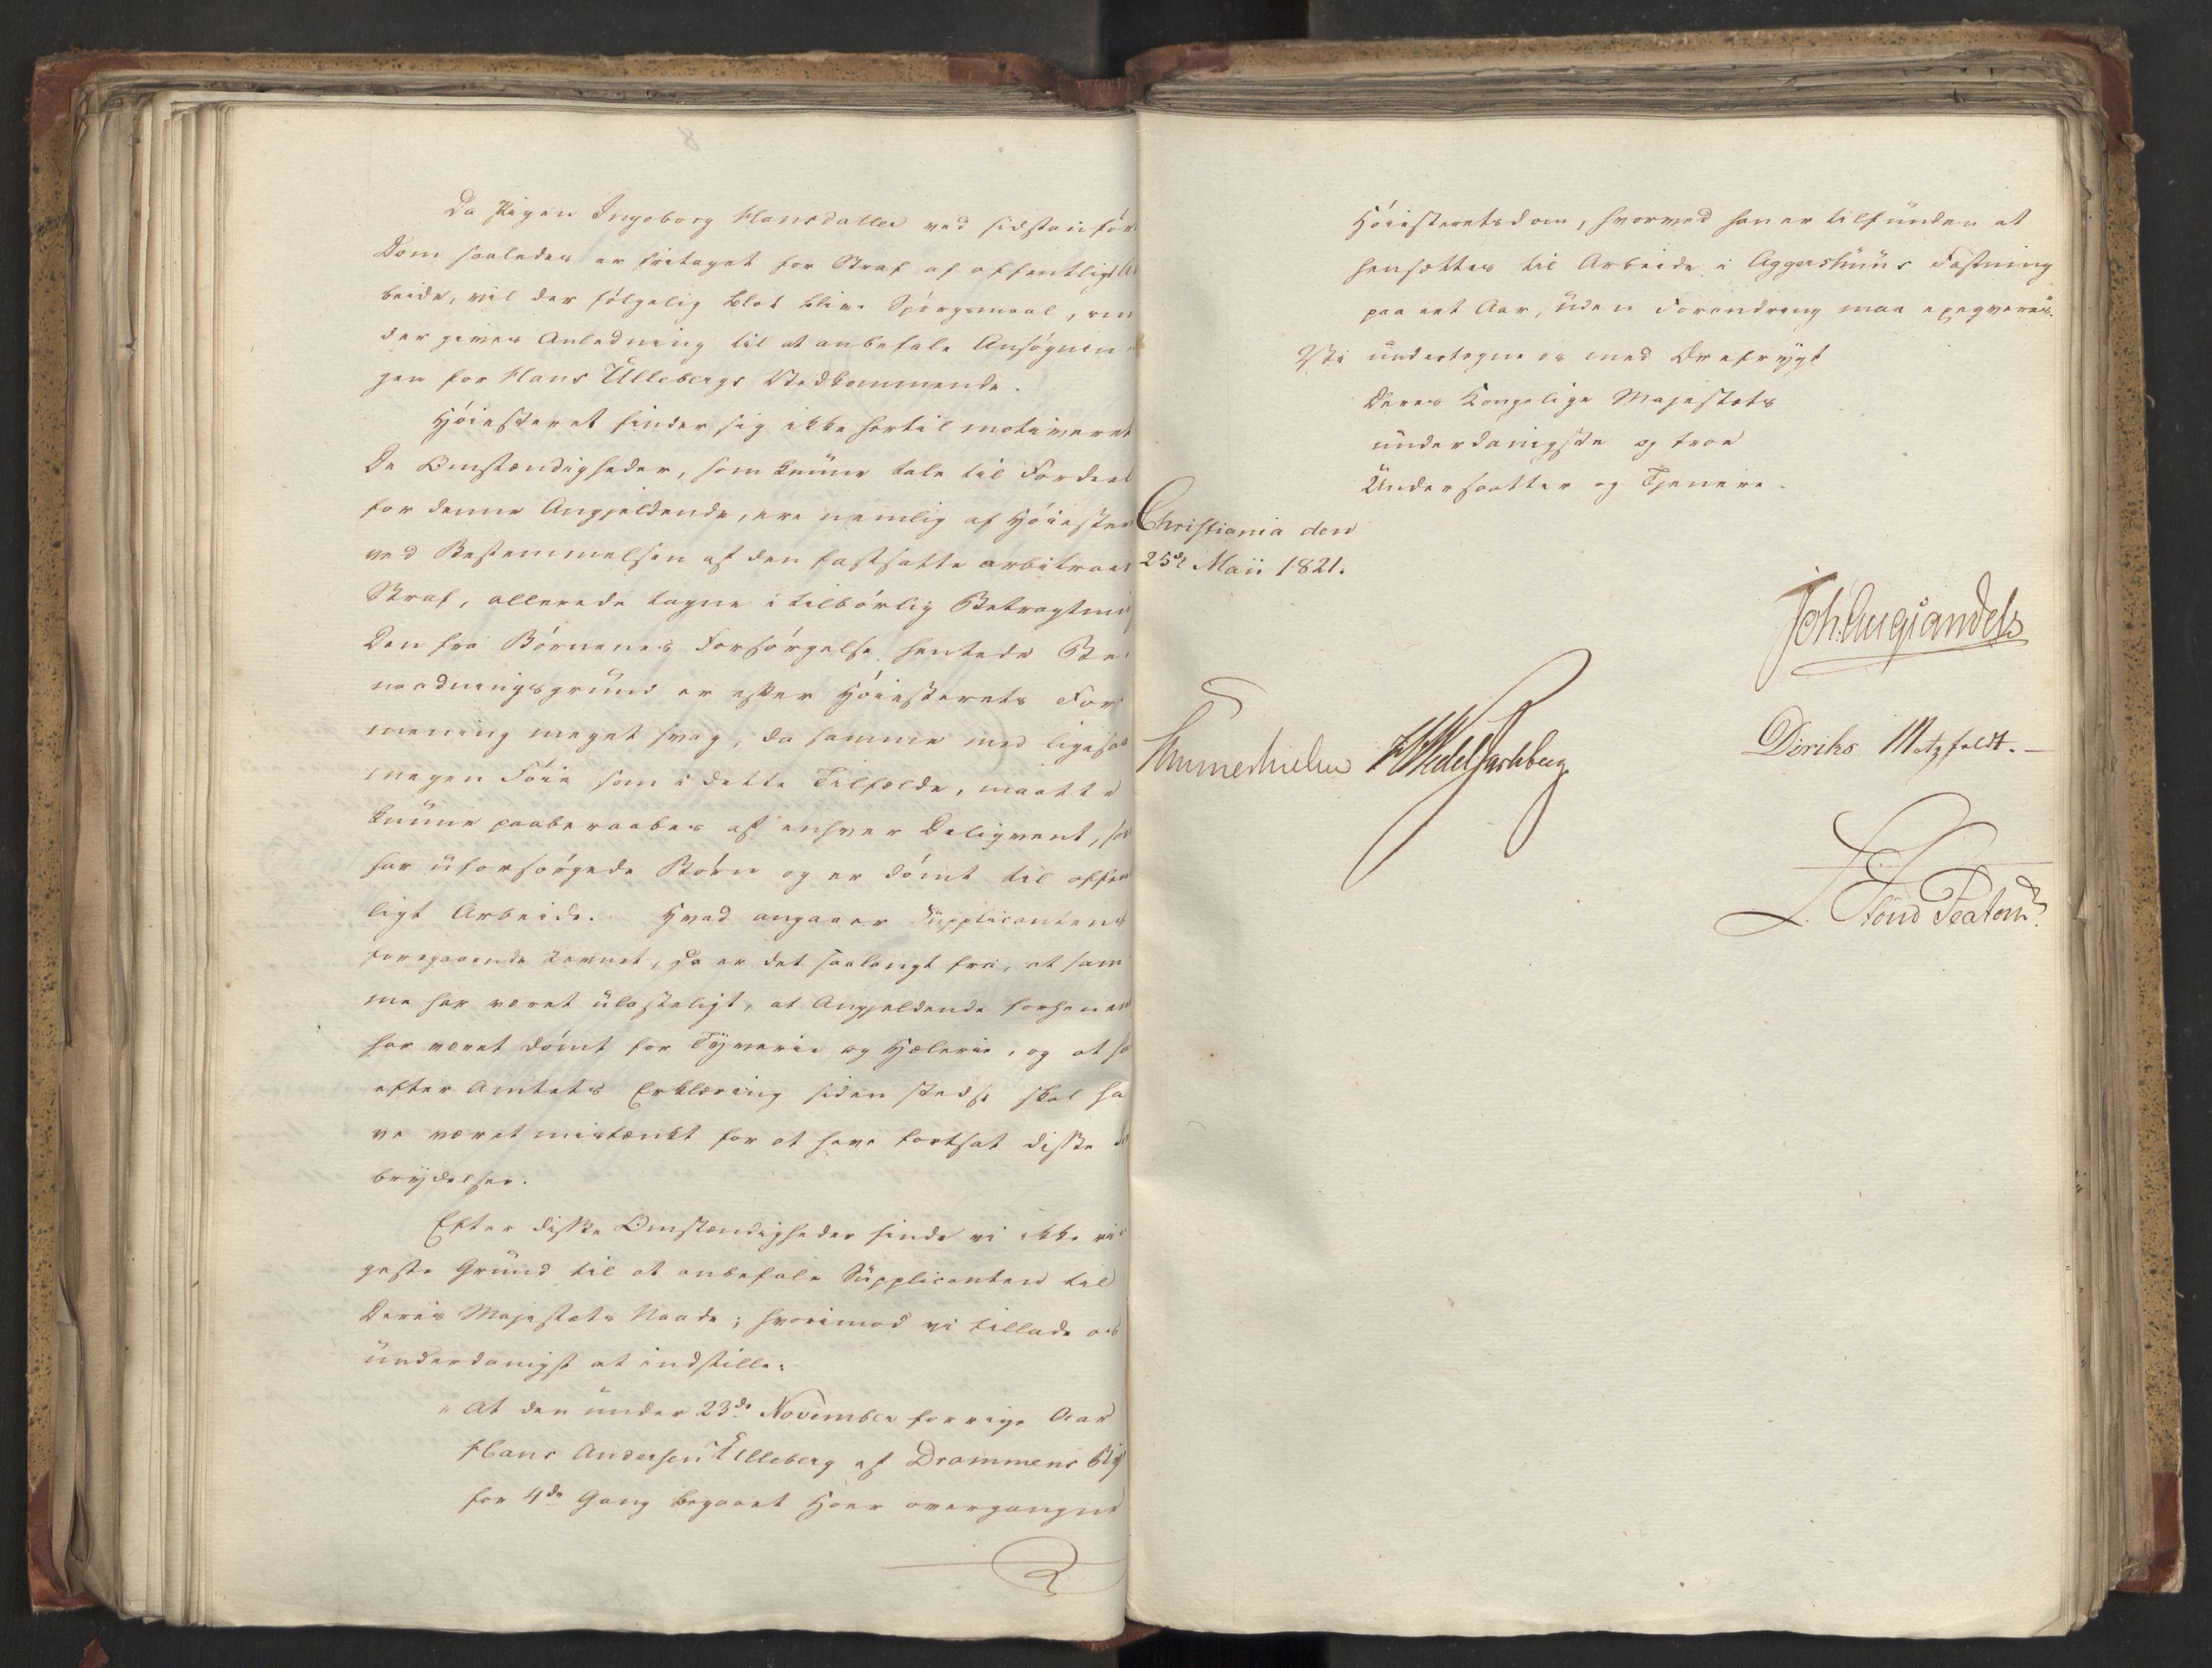 Da Pigen Ingeborg Hansdatter ved sidstanför
Dom saaledes er fritaget for Straf af offentligt Ar
beide, vil der fölgelig blot blive Spörgsmaal, om
der gives Anledning til at anbefale Ansögnin
gen for Hans Ullebergs Vedkommende.
Höiesteret finder sig ikke hertil motiveret
De Omstændigheder, som kunne tale til Fordeel
for denne Angjeldende, ere nemlig af Höiester
ved Bestemmelsen af den fastsatte arbitrair
Straf, allerede tagne i tilbörlig Betragtning
Den fra Börnenes Forsörgelse hentede Be-
naadningsgrund er efter Höiesterets For
mening meget svag, da samme med ligesaa
megen Föie som i dette Tilfælde, maatte
kunne paaberaabes af enhver Deliqvent, som
har uforsörgede Börn og er dömt til offent
ligt Arbeide. Hvad angaaer Supplicantens
foregaaende Levnet, da er det saalangt fra, at sam
me har været ulasteligt, at Angjeldende forhen er
har været dömt for Tyverie og Hæleri, og at han
efter Amtets Erklæring siden stedse skal ha
ve været mistænkt for at have fortsat disse
brydelser.
Efter disse Omstændigheder finde vi ikke rin
geste Grund til at anbefale Supplicanten til
Deres Majestæts Naade; hvorimod vi tillade os
underdanigst at indstille:
"At den under 23de November forrige Aar
Hans Andersen Ulleberg af Drammens By
for 4de Gang begaaet Hoer overgangne
Höiesteretsdom, hvorved han er tilfunden at
hensættes til Arbeide i Aggershuus Fæstning
paa eet Aar, uden Forandring maa exeqveres.
Vi undertegne os med Ærefrygt
Deres Kongelige Majestæts
underdanigste og troe
Undersaatter og Tjenere.
Christiania den
25de Maii 1821.
Joh. Aug. Sandels
Sommerhielm HWedel Jarlsberg
Diriks Motzfeldt.